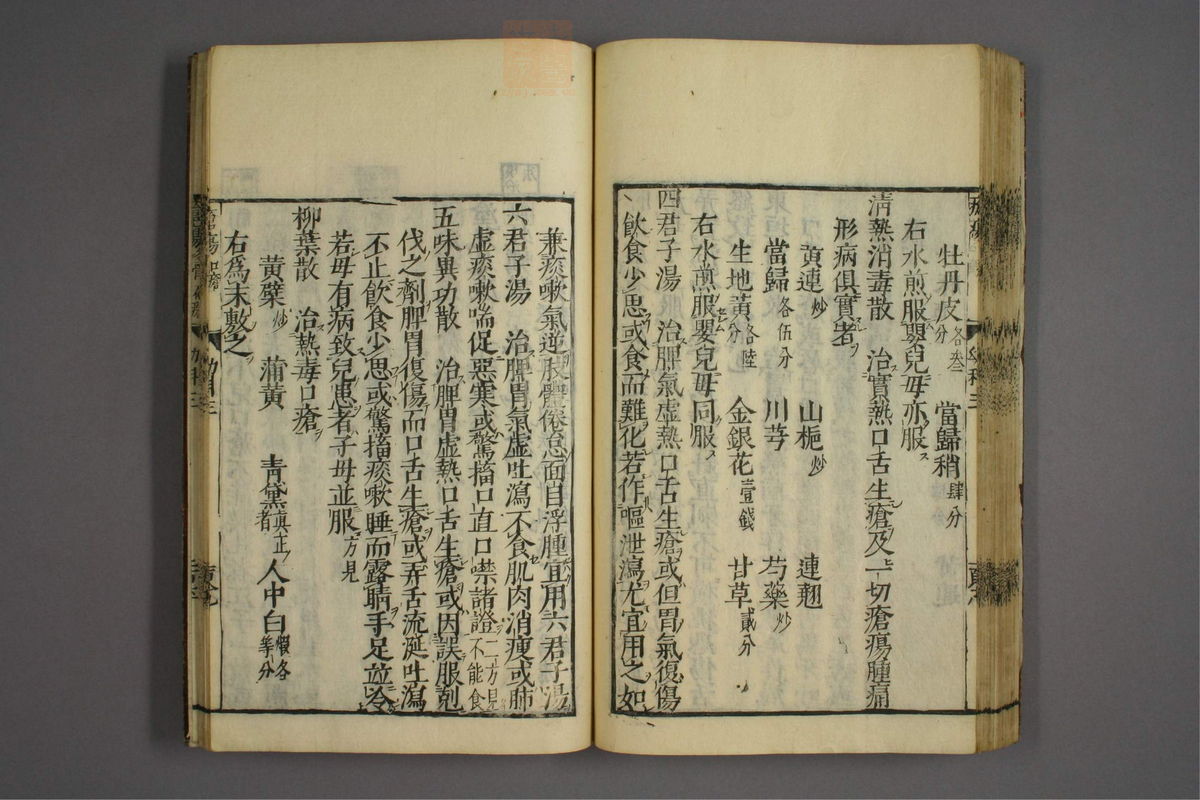 牡丹皮各叁分 當歸稍肆分
右水煎服嬰兒母亦服
清熱消毒散 治實熱口舌生瘡及一切瘡瘍腫痛
形病俱實者
黄連炒 山梔炒 連翹
當歸各伍分 川芎 芍藥炒
生地黄各陸分 金銀花壹錢 甘草貳分
右水煎服嬰兒母同服
四君子湯 治脾氣虚熱口舌生瘡或但胃氣復傷
飲食少思或食而難化若作嘔泄瀉尤宜用之如
兼痰嗽氣逆肢體倦怠面目浮腫宜用六君子湯
六君子湯 治脾胃氣虚吐瀉不食肌肉消瘦或肺
虚痰嗽喘促惡寒或驚搐口直口噤諸證二方見不能食
五味異功散 治脾胃虚熱口舌生瘡或因誤服剋
伐之劑脾胃復傷而口舌生瘡或弄舌流涎吐瀉
不止飲食少思或驚搐痰嗽睡而露睛手足並冷
若母有病致兒患者子母並服方見
柳葉散 治熱毒口瘡
黄蘗炒 蒲黄 青黛真正者 人中白煆各等分
右爲末敷之